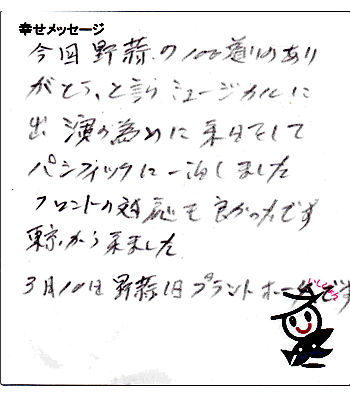 幸せメッセージ
今回野蒜の100通りのあり
がとう、と言うミュージカルに
出演の為めに来日をして
パシフィックに一泊しました
フロントの対応も良かったです
東京から来ました
3月10日 野蒜 1日 プラントホールです